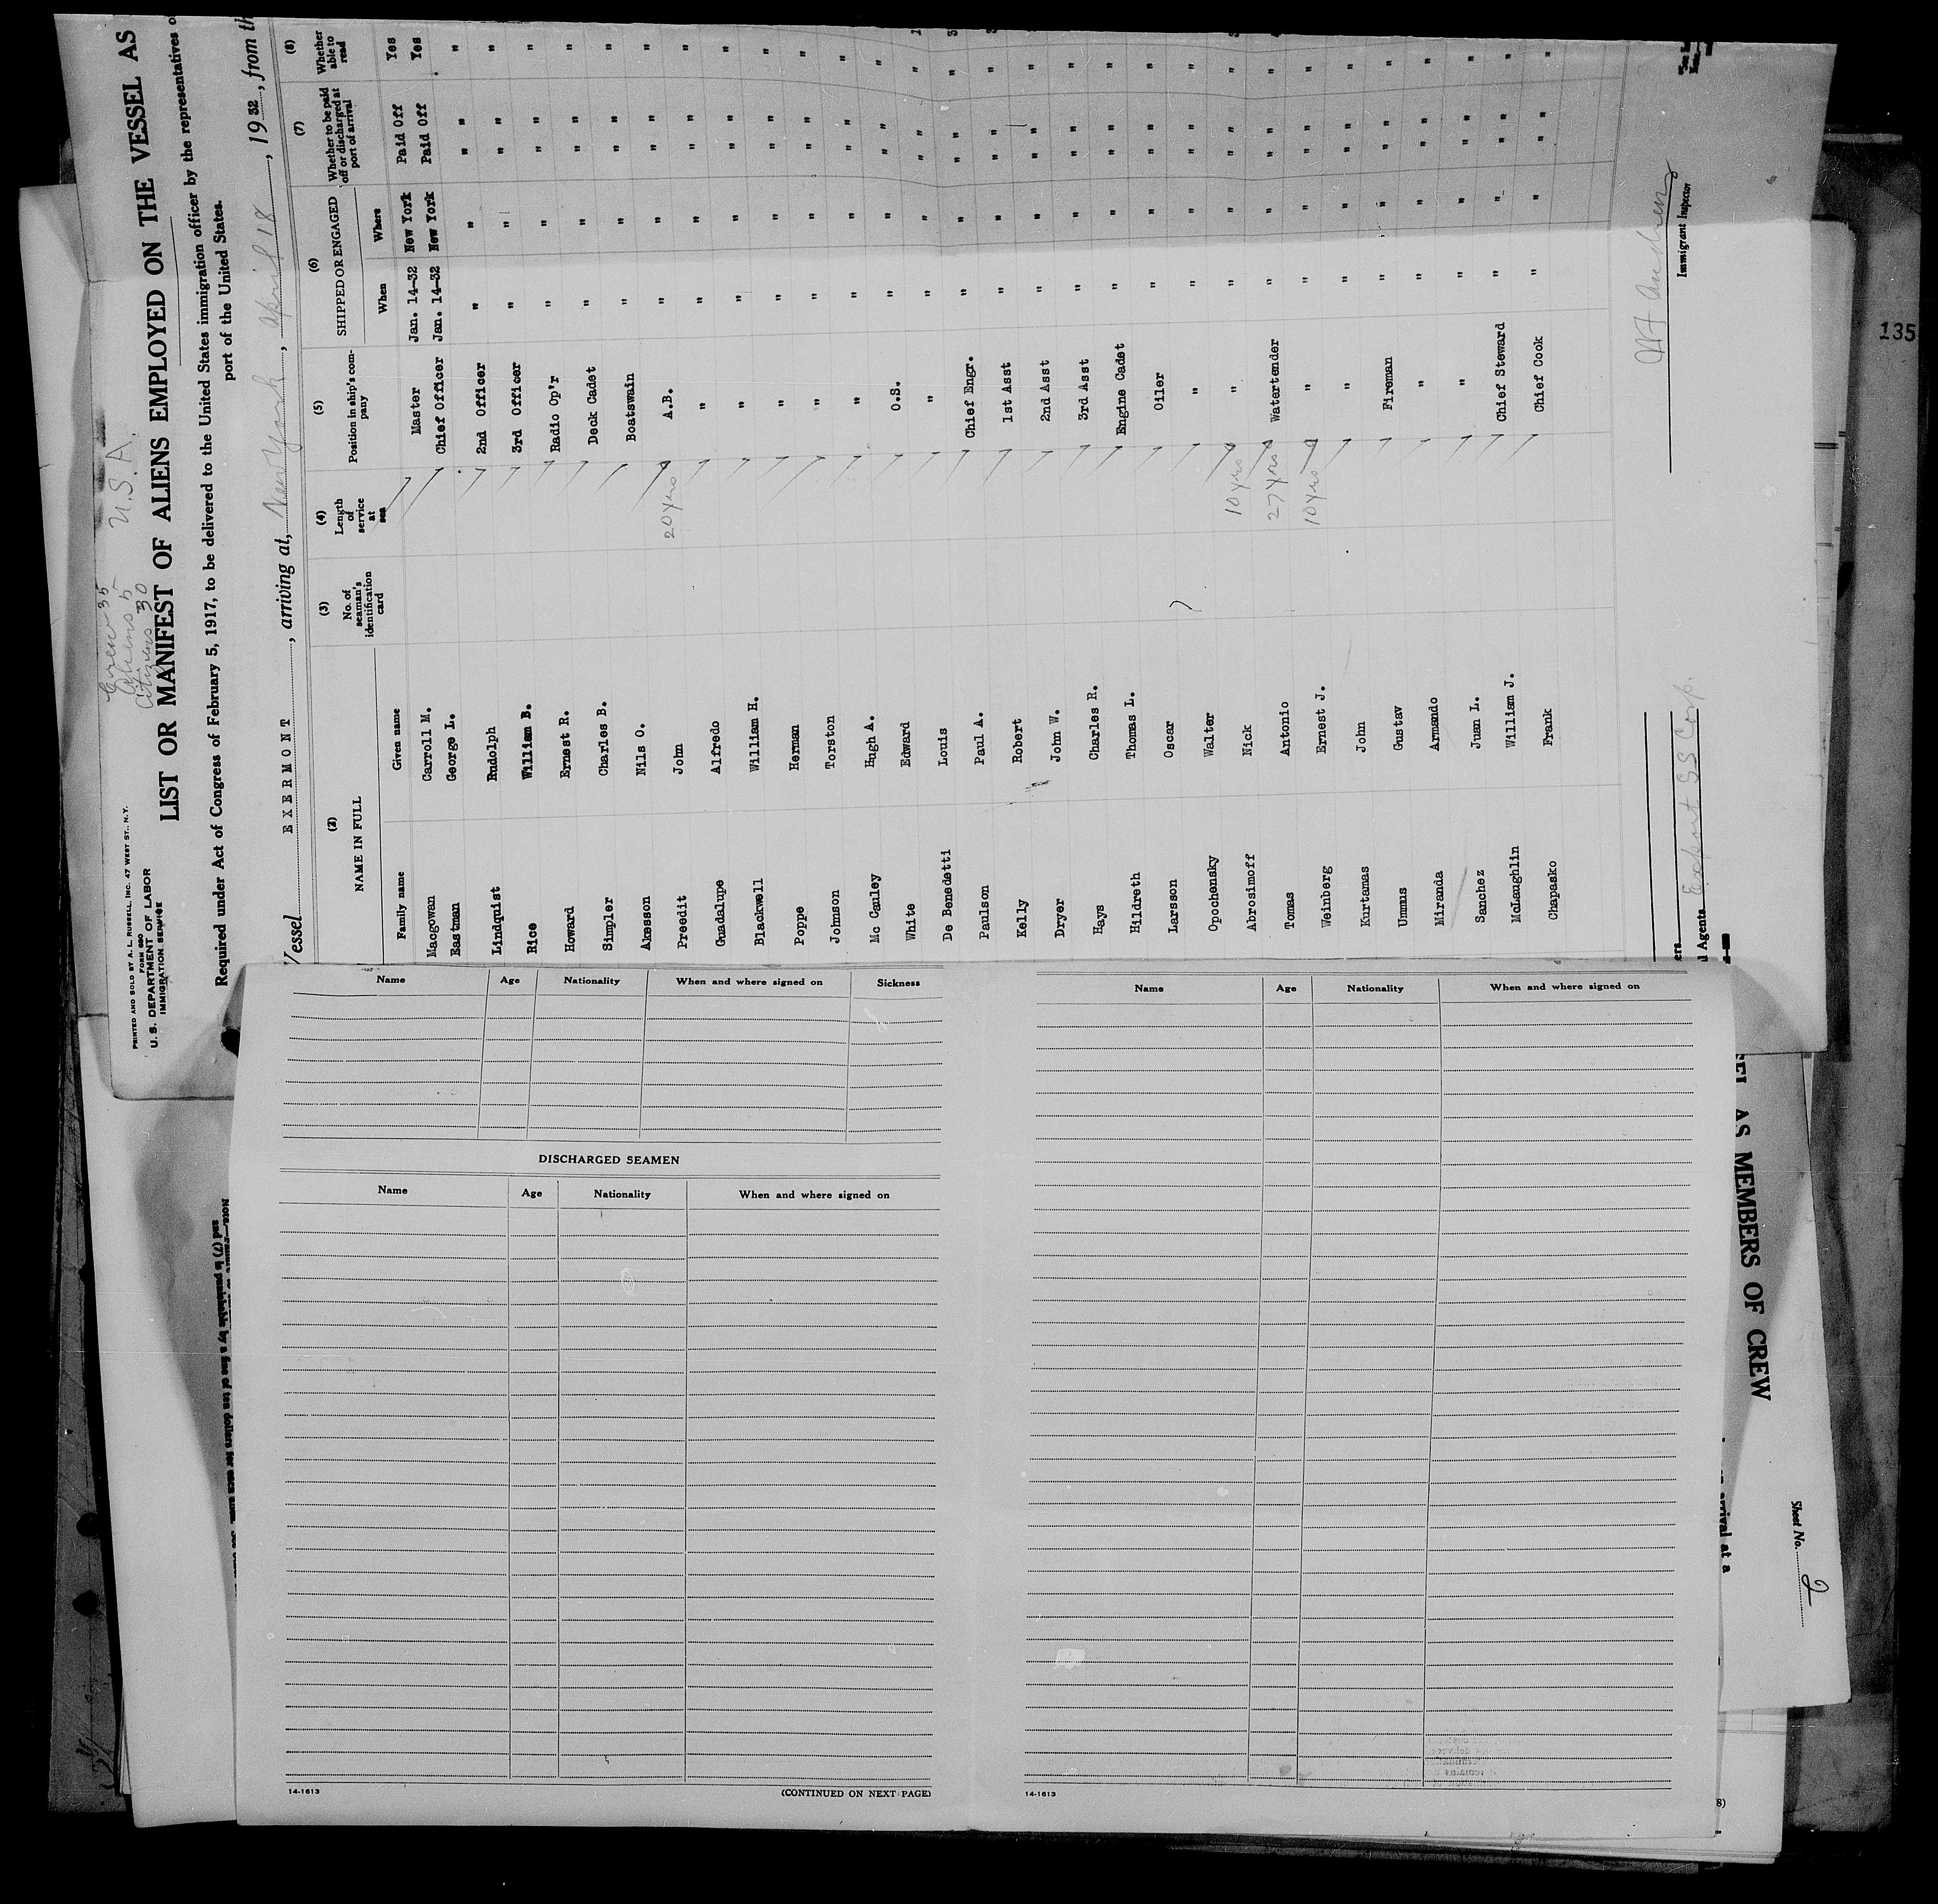 Crew 35
Aliens 5
Citizens 30
U.S.A.
PRINTED AND SOLD BY A. L. RUSSELL, INC. 47 WEST ST., N.Y.
FORM 680
U. S. DEPARTMENT OF LABOR
IMMIGRATION SERVICE
LIST OR MANIFEST OF ALIENS EMPLOYED ON THE VESSEL AS
Required under Act of Congress of February 5, 1917, to be delivered to the United States immigration officer by the representatives
port of the United States.
Vessel EXERMONT, arriving at, New York, April 18, 1932, from
(2) (3) (4) (5) (6) (7) (8)
NAME IN FULL No. of seaman's identification card Length of service at sea Position in ship's company SHIPPED OR ENGAGED Whether to be paid off or discharged at port of arrival Whether able to read
Family name Given name When Where
Macgowan Carroll M. Master Jan. 14-32 New York Paid Off Yes
Eastman George L. Chief Officer Jan. 14-32 New York Paid Off Yes
Lindquist Rudolph 2nd Officer " " " " "
Rice William B. 3rd Officer " " " " "
Howard Ernest R. Radio Op'r " " " " "
Simpler Charles B. Deck Cadet " " " " "
Akesson Nils O. Boatswain " " " " "
Preedit John 20 yrs A.B. " " " " "
Guadalupe Alfredo " " " " " "
Blackwell William H. " " " " " "
Poppe Herman " " " " " "
Johnson Torston " " " " " "
Mc Cauley Hugh A. " " " " " "
White Edward O.S. " " " " "
De Benedetti Louis " " " " " "
Paulson Paul A. Chief Engr. " " " " "
Kelly Robert 1st Asst " " " " "
Dryer John W. 2nd Asst " " " " "
Hays Charles R. 3rd Asst " " " " "
Hildreth Thomas L. Engine Cadet " " " " "
Larsson Oscar Oiler " " " " "
Opochensky Walter " " " " " "
Abrosimoff Nick 10 yrs " " " " " "
Tomas Antonio 27 yrs Watertender " " " " "
Weinberg Ernest J. 10 yrs " " " " " "
Kurtamas John " " " " " "
Ummus Gustav Fireman " " " " "
Miranda Armando " " " " " "
Sanchez Juan L. " " " " " "
McLaughlin William J. Chief Steward " " " " "
Chapasko Frank Chief Cook " " " " "
Immigrant Inspector
Agents Export SS Corp.
135
Name Age Nationality When and where signed on Sickness
DISCHARGED SEAMEN
Name Age Nationality When and where signed on
14-1613
(CONTINUED ON NEXT PAGE)
Name Age Nationality When and where signed on
14-1613
AS MEMBERS OF CREW
arrival at a
Sheet No. 2